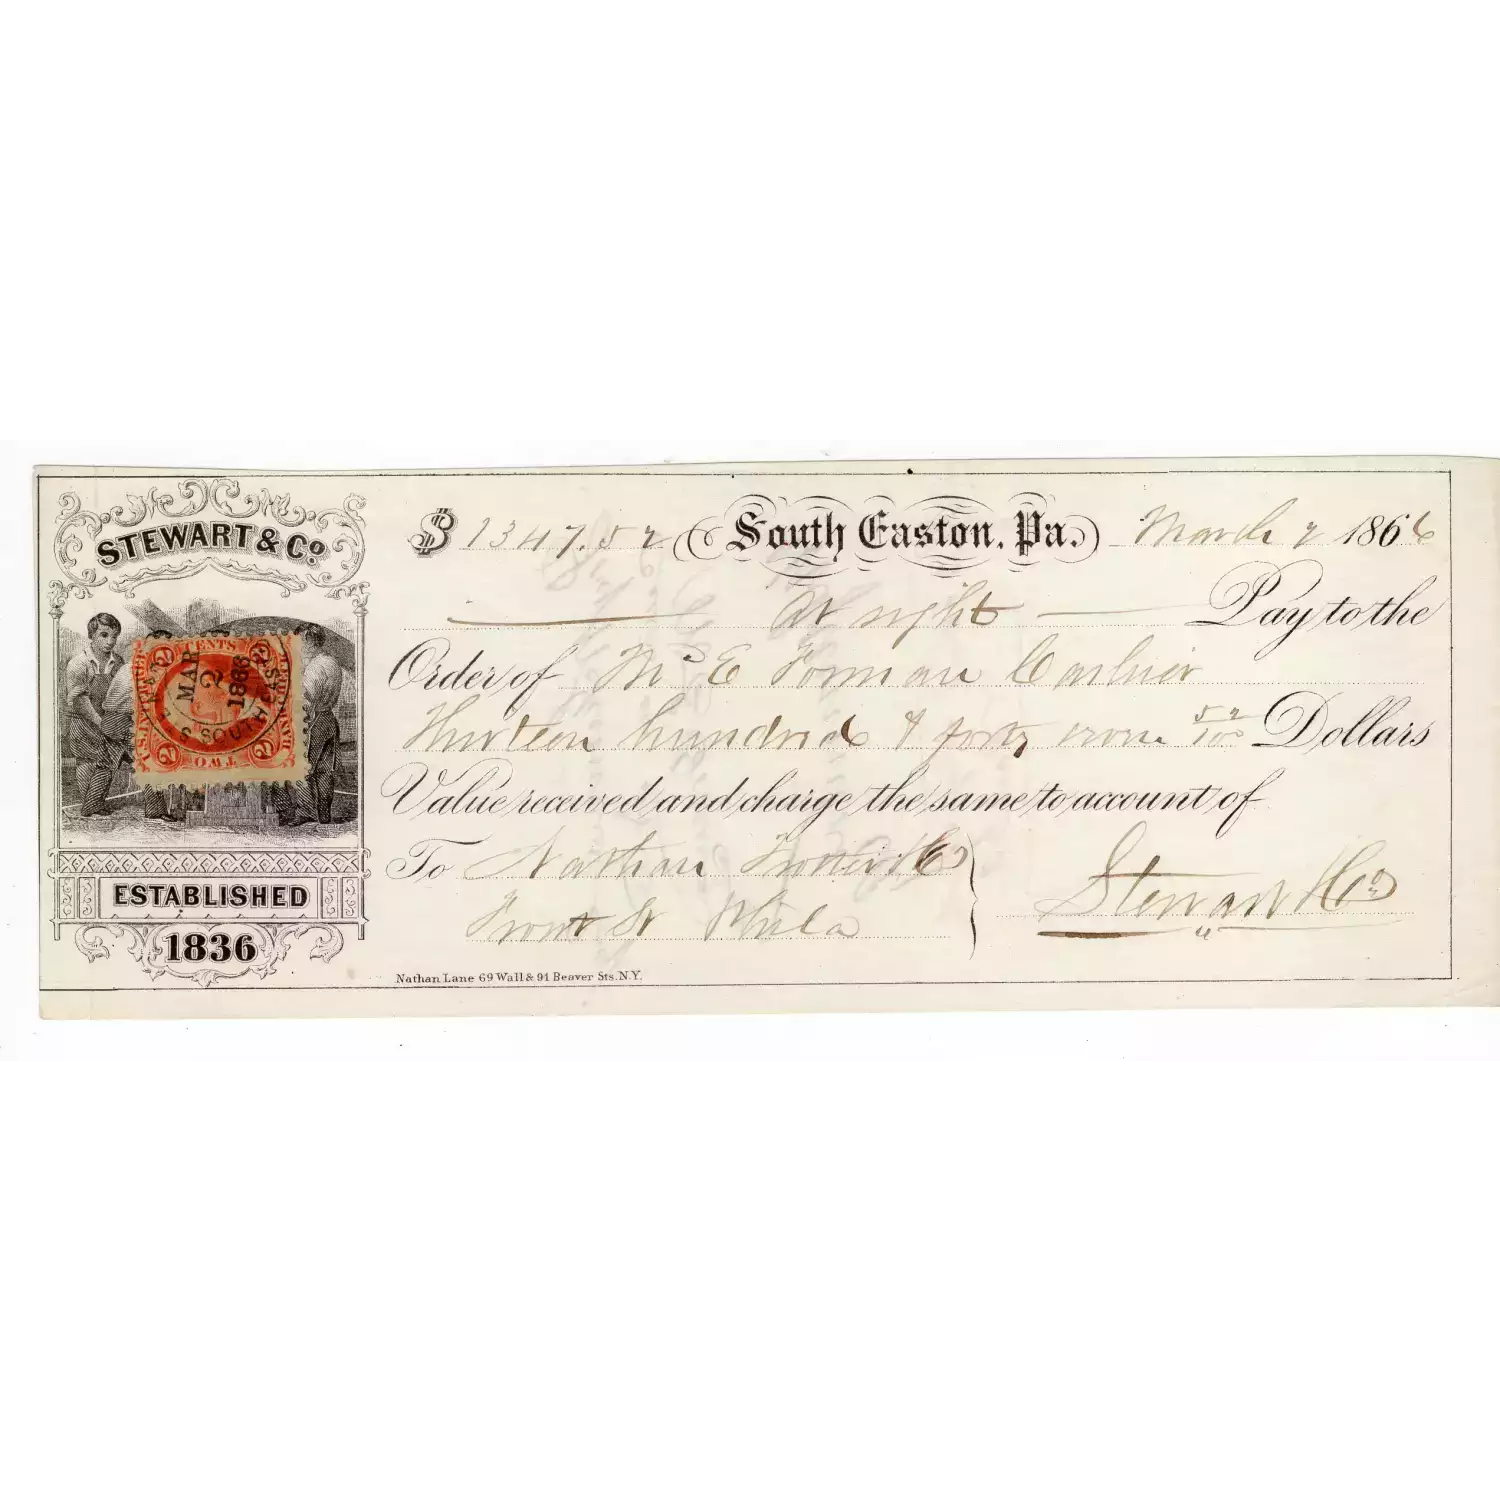 STEWART & Co.
ESTABLISHED
1836
U.S. INTER. REV.
TWO CENTS
2
MAR
2
1866
SOUTH EAST
$ 1347.52 South Easton, Pa. March 2 1866
At sight Pay to the
Order of Mc E Forman Cashier
Thirteen hundred & forty 52/100 Dollars
Value received and charge the same to account of
To Nathan Trotter & Co
Front St Phila
Stewart & Co
Nathan Lane 69 Wall & 91 Beaver Sts. N.Y.